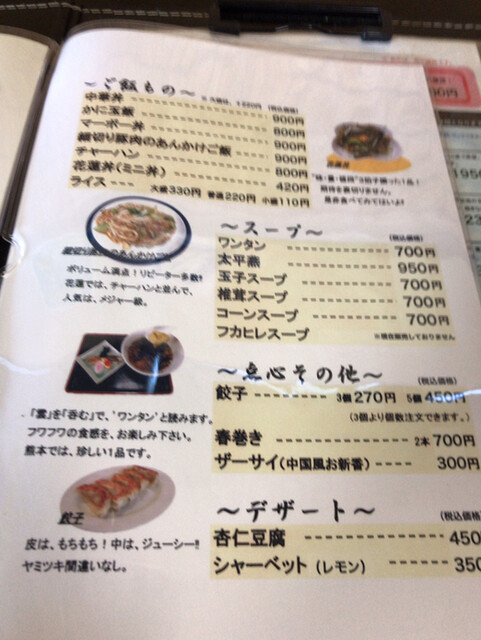 ～ご飯もの～
(税込価格)
中華丼 900円
かに玉飯 800円
マーボー丼 900円
細切り豚肉のあんかけご飯 900円
チャーハン 800円
花蓮丼(ミニ丼) 420円
ライス 大盛330円 普通220円 小盛110円
期待を裏切りません。
是非食べてみてはいよ!!
ボリューム満点！リピーター多数!!
花蓮では、チャーハンと並んで、
人気は、メジャー級。
～スープ～
(税込価格)
ワンタン 700円
太平燕 950円
玉子スープ 700円
椎茸スープ 700円
コーンスープ 700円
フカヒレスープ ※現在販売しておりません
「雲」を「呑む」で、'ワンタン'と読みます。
フワフワの食感を、お楽しみ下さい。
熊本では、珍しい1品です。
～点心その他～
(税込価格)
餃子 3個270円 5個450円
(3個より個数注文できます。)
春巻き 2本700円
ザーサイ(中国風お新香) 300円
餃子
皮は、もちもち！中は、ジューシー!!
ヤミツキ間違いなし。
～デザート～
(税込価格)
杏仁豆腐 450
シャーベット (レモン) 350